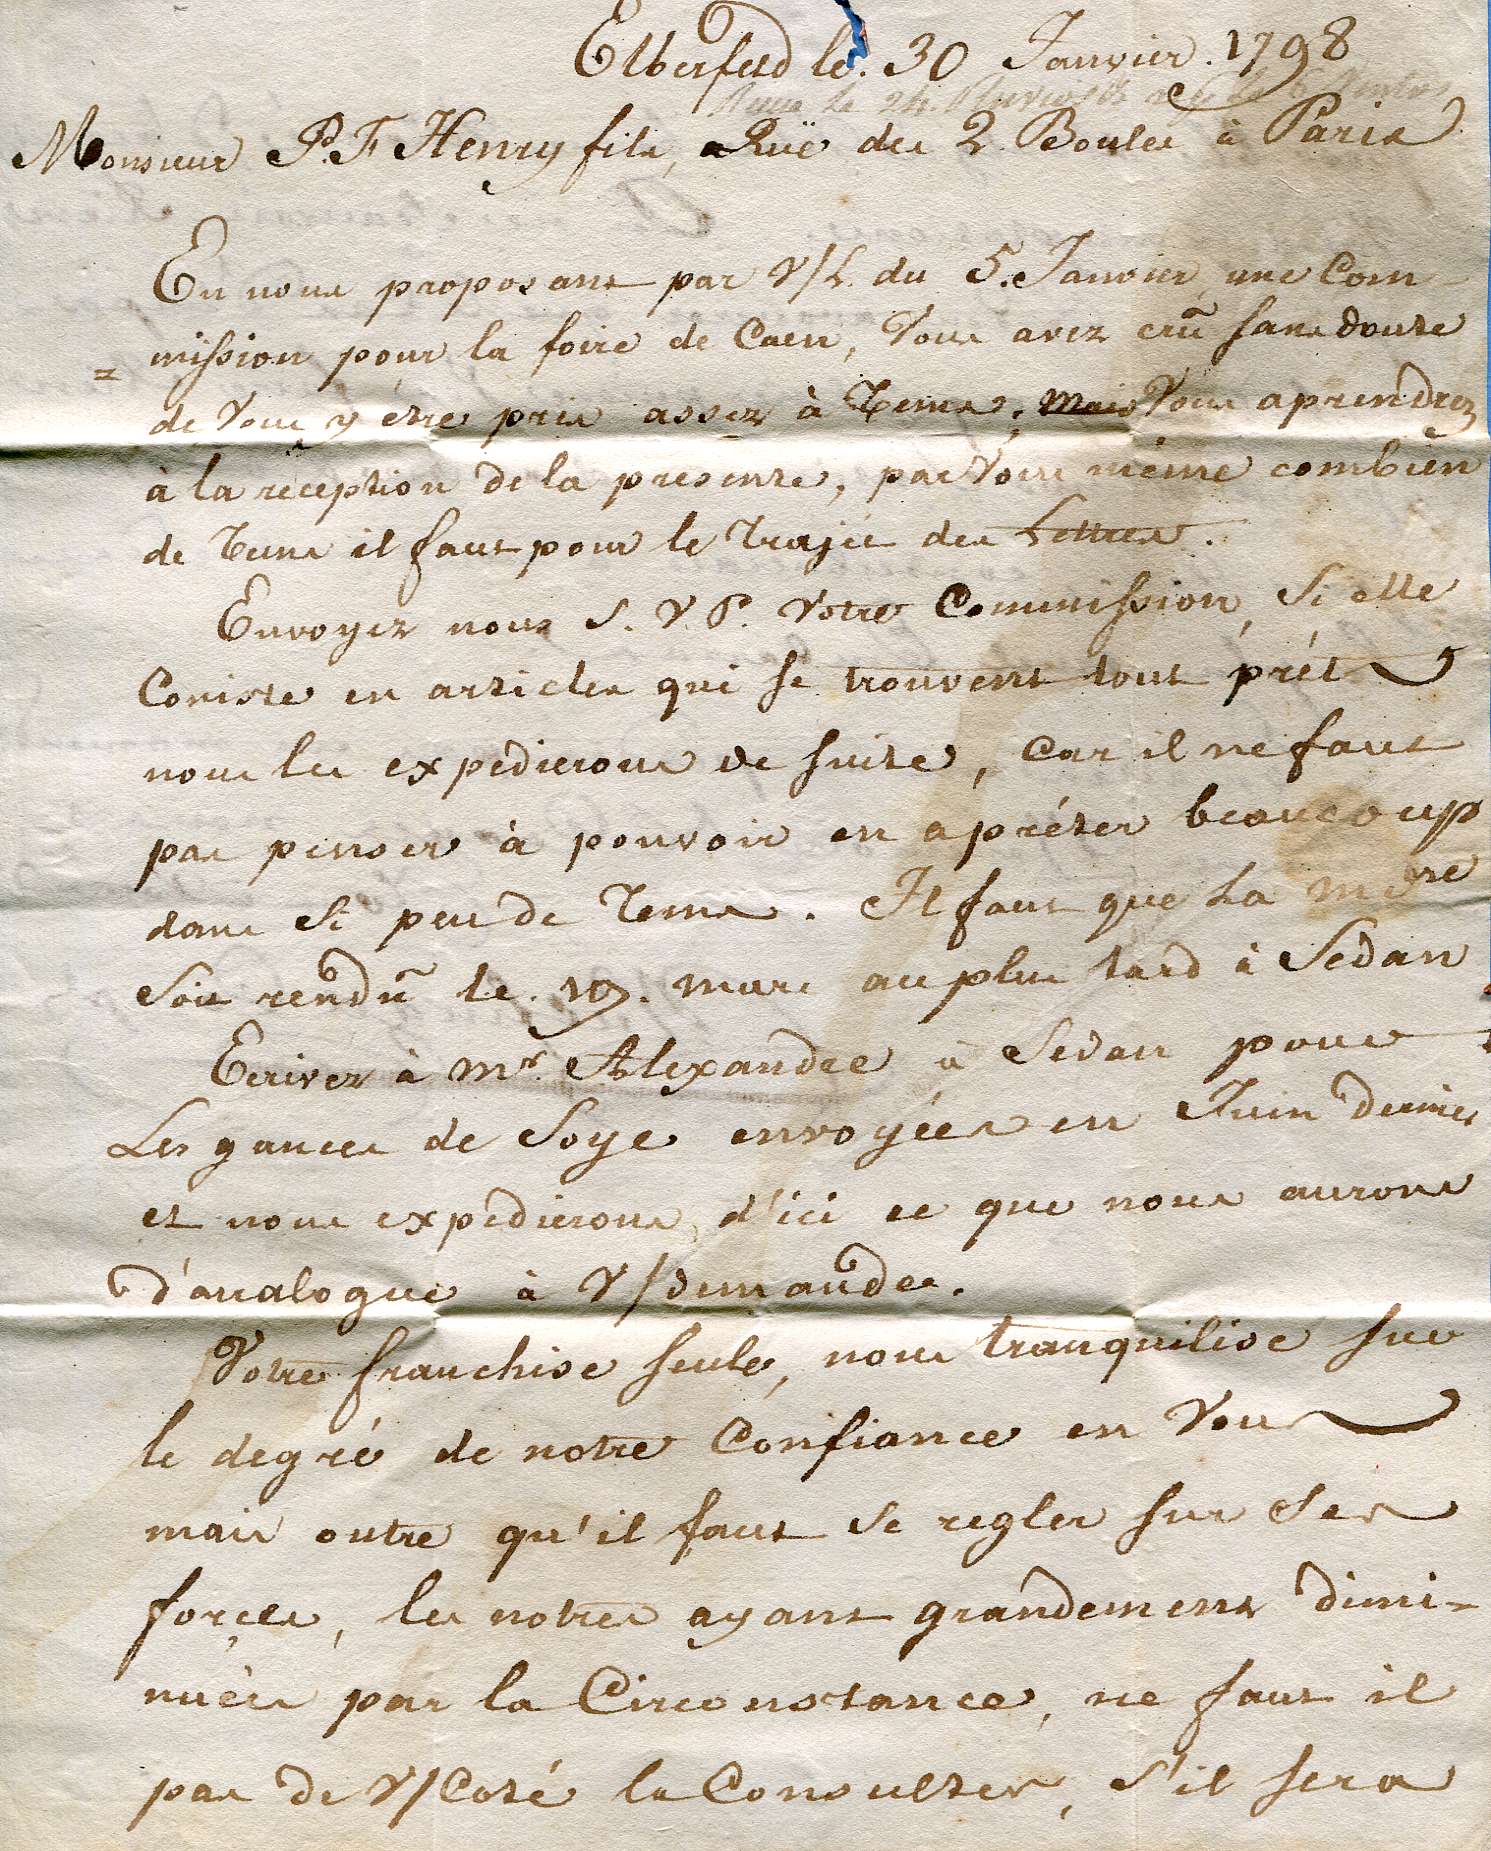 Elberfeld le. 30 Janvier. 1798
Monsieur P. F. Henry fils, Ruë des 2. Boules à Paris
En nous proposant par V/L. du 5. Janvier, une Com
= mission pour la foire de Caen, Vous avez crû sans doute
de Vous y étre pris assez à Tems, mais Vous aprendrez
à la reception de la presente, par Vous même combien
de Tems il faut pour le Trajét des Lettres.
Envoyez nous S. V. P. Votre Commission, Si elle
Consiste en articles qui se trouvent tout prét
nous les expedierons de suite, Car il ne faut
pas penser à pouvoir en apréter beaucoup
dans Si peu de Tems. Il faut que La mdre
Soit rendû le. 19. mars au plus tard à Sedan
Ecrivez à Mr. Alexandre à Sedan pour
Les gances de Soye envoyées en Juin dernier
et nous expedierons d'ici ce que nous aurons
d'analogue à V/demande.
Votre franchise seule, nous tranquilise sur
le degré de notre Confiance en Vous
mais outre qu'il faut se regler sur Ses
forces, les notres ayant grandement dimi=
nuées par la Circonstance, ne faut il
pas de V/Coté la Consulter, S'il sera